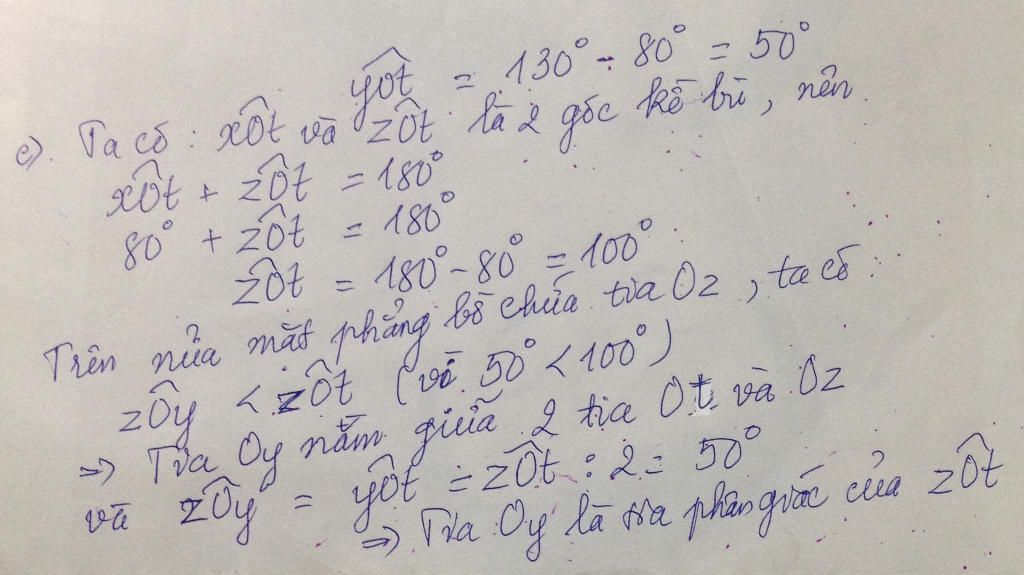 yOt = 130° - 80° = 50°
c). Ta có : xOt và zOt là 2 góc kề bù, nên
xOt + zOt = 180°
80° + zOt = 180°
zOt = 180° - 80° = 100°
Trên nửa mặt phẳng bờ chứa tia Oz, ta có :
zOy < zOt (vì 50° < 100°)
=> Tia Oy nằm giữa 2 tia Ot và Oz
và zOy = yOt = zOt : 2 = 50°
=> Tia Oy là tia phân giác của zOt